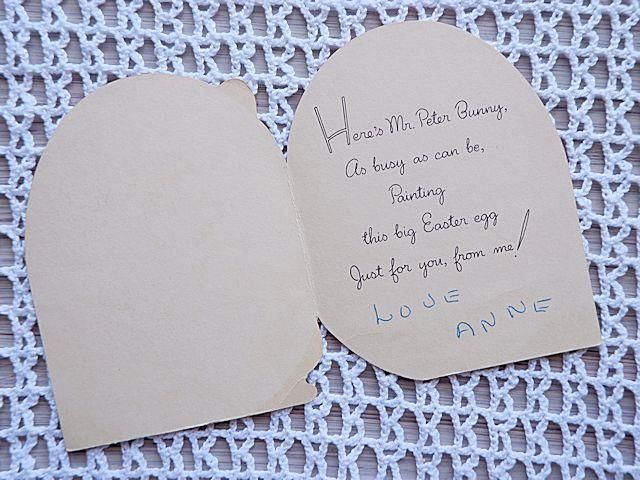 Here's Mr. Peter Bunny,
As busy as can be,
Painting
this big Easter egg
Just for you, from me!
LOVE
ANNE